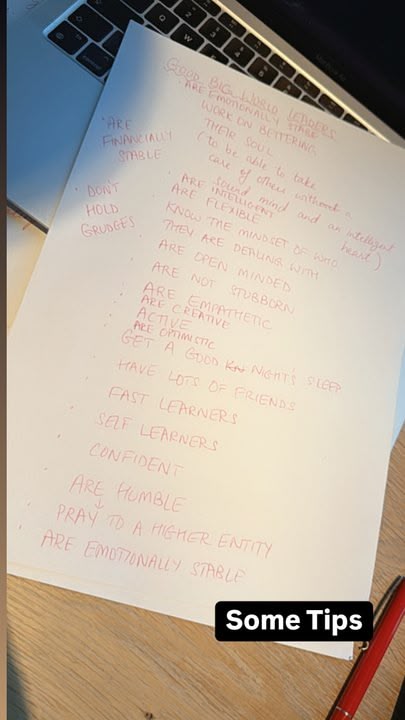 GOOD BIG WORLD LEADERS
• ARE EMOTIONALLY STABLE
WORK ON BETTERING
THEIR SOUL
(to be able to take
care of others without a
sound mind and an intelligent
heart)
• ARE
FINANCIALLY
STABLE
• DON'T
HOLD
GRUDGES
• ARE INTELLIGENT
• ARE FLEXIBLE
• KNOW THE MINDSET OF WHO
THEY ARE DEALING WITH
• ARE OPEN MINDED
• ARE NOT STUBBORN
• ARE EMPATHETIC
• ARE CREATIVE
• ACTIVE
• ARE OPTIMISTIC
• GET A GOOD NIGHT'S SLEEP
• HAVE LOTS OF FRIENDS
• FAST LEARNERS
• SELF LEARNERS
• CONFIDENT
• ARE HUMBLE
↓
• PRAY TO A HIGHER ENTITY
• ARE EMOTIONALLY STABLE
Some Tips